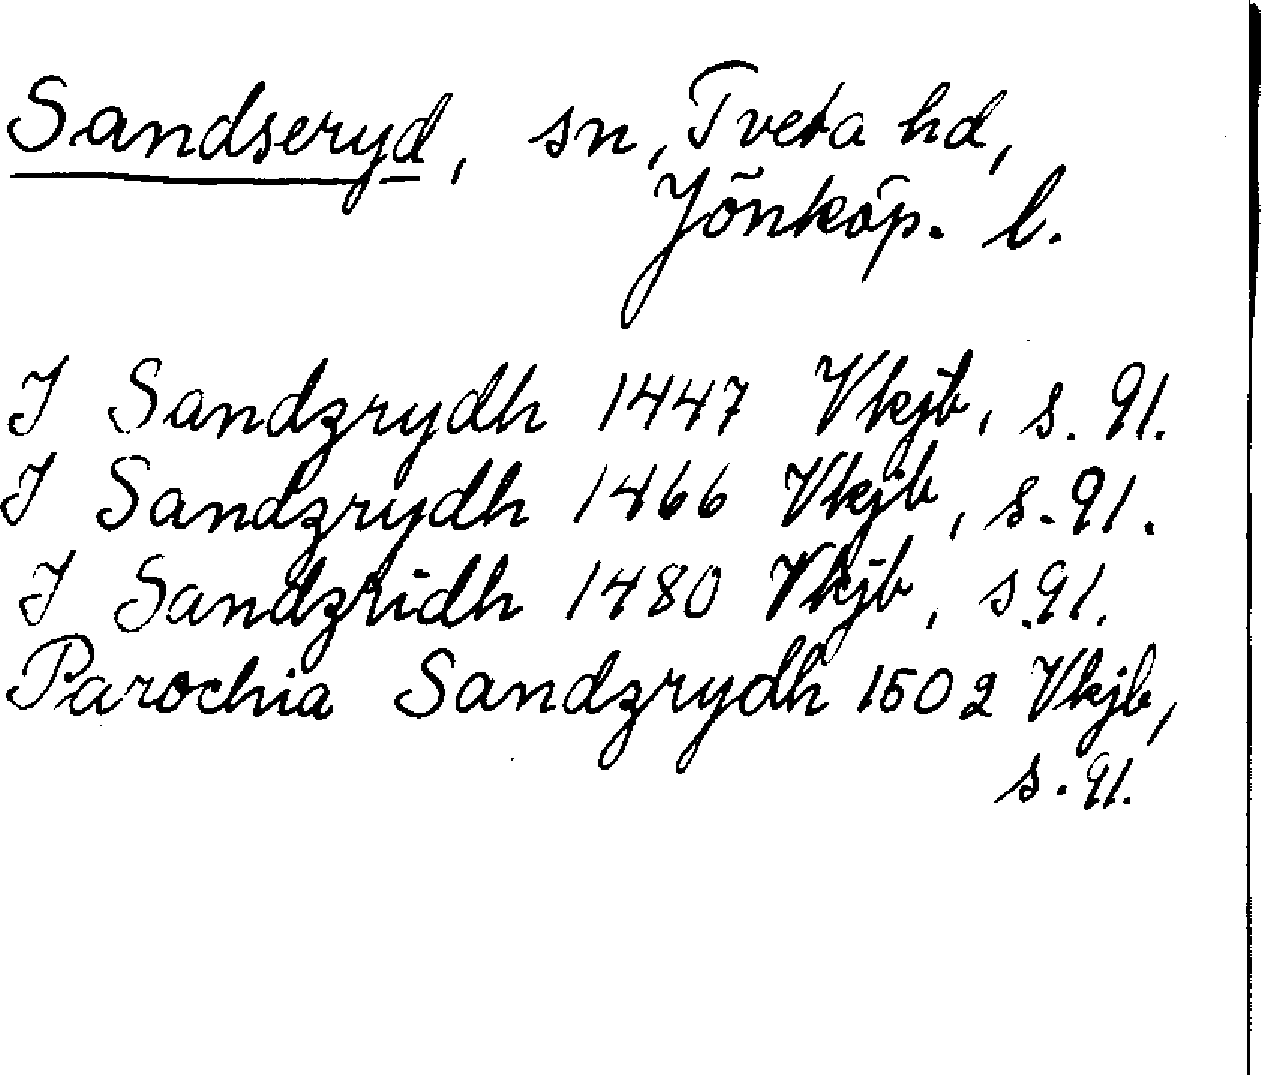 Sandseryd, sn, Tveta hd,
Jönköp. l.
I Sandzrydh 1447 Vkjb, s. 91.
I Sandzrydh 1466 Vkjb, s. 91.
I Sandzridh 1480 Vkjb, s. 91.
Parochia Sandzrydh 1502 Vkjb,
s. 91.